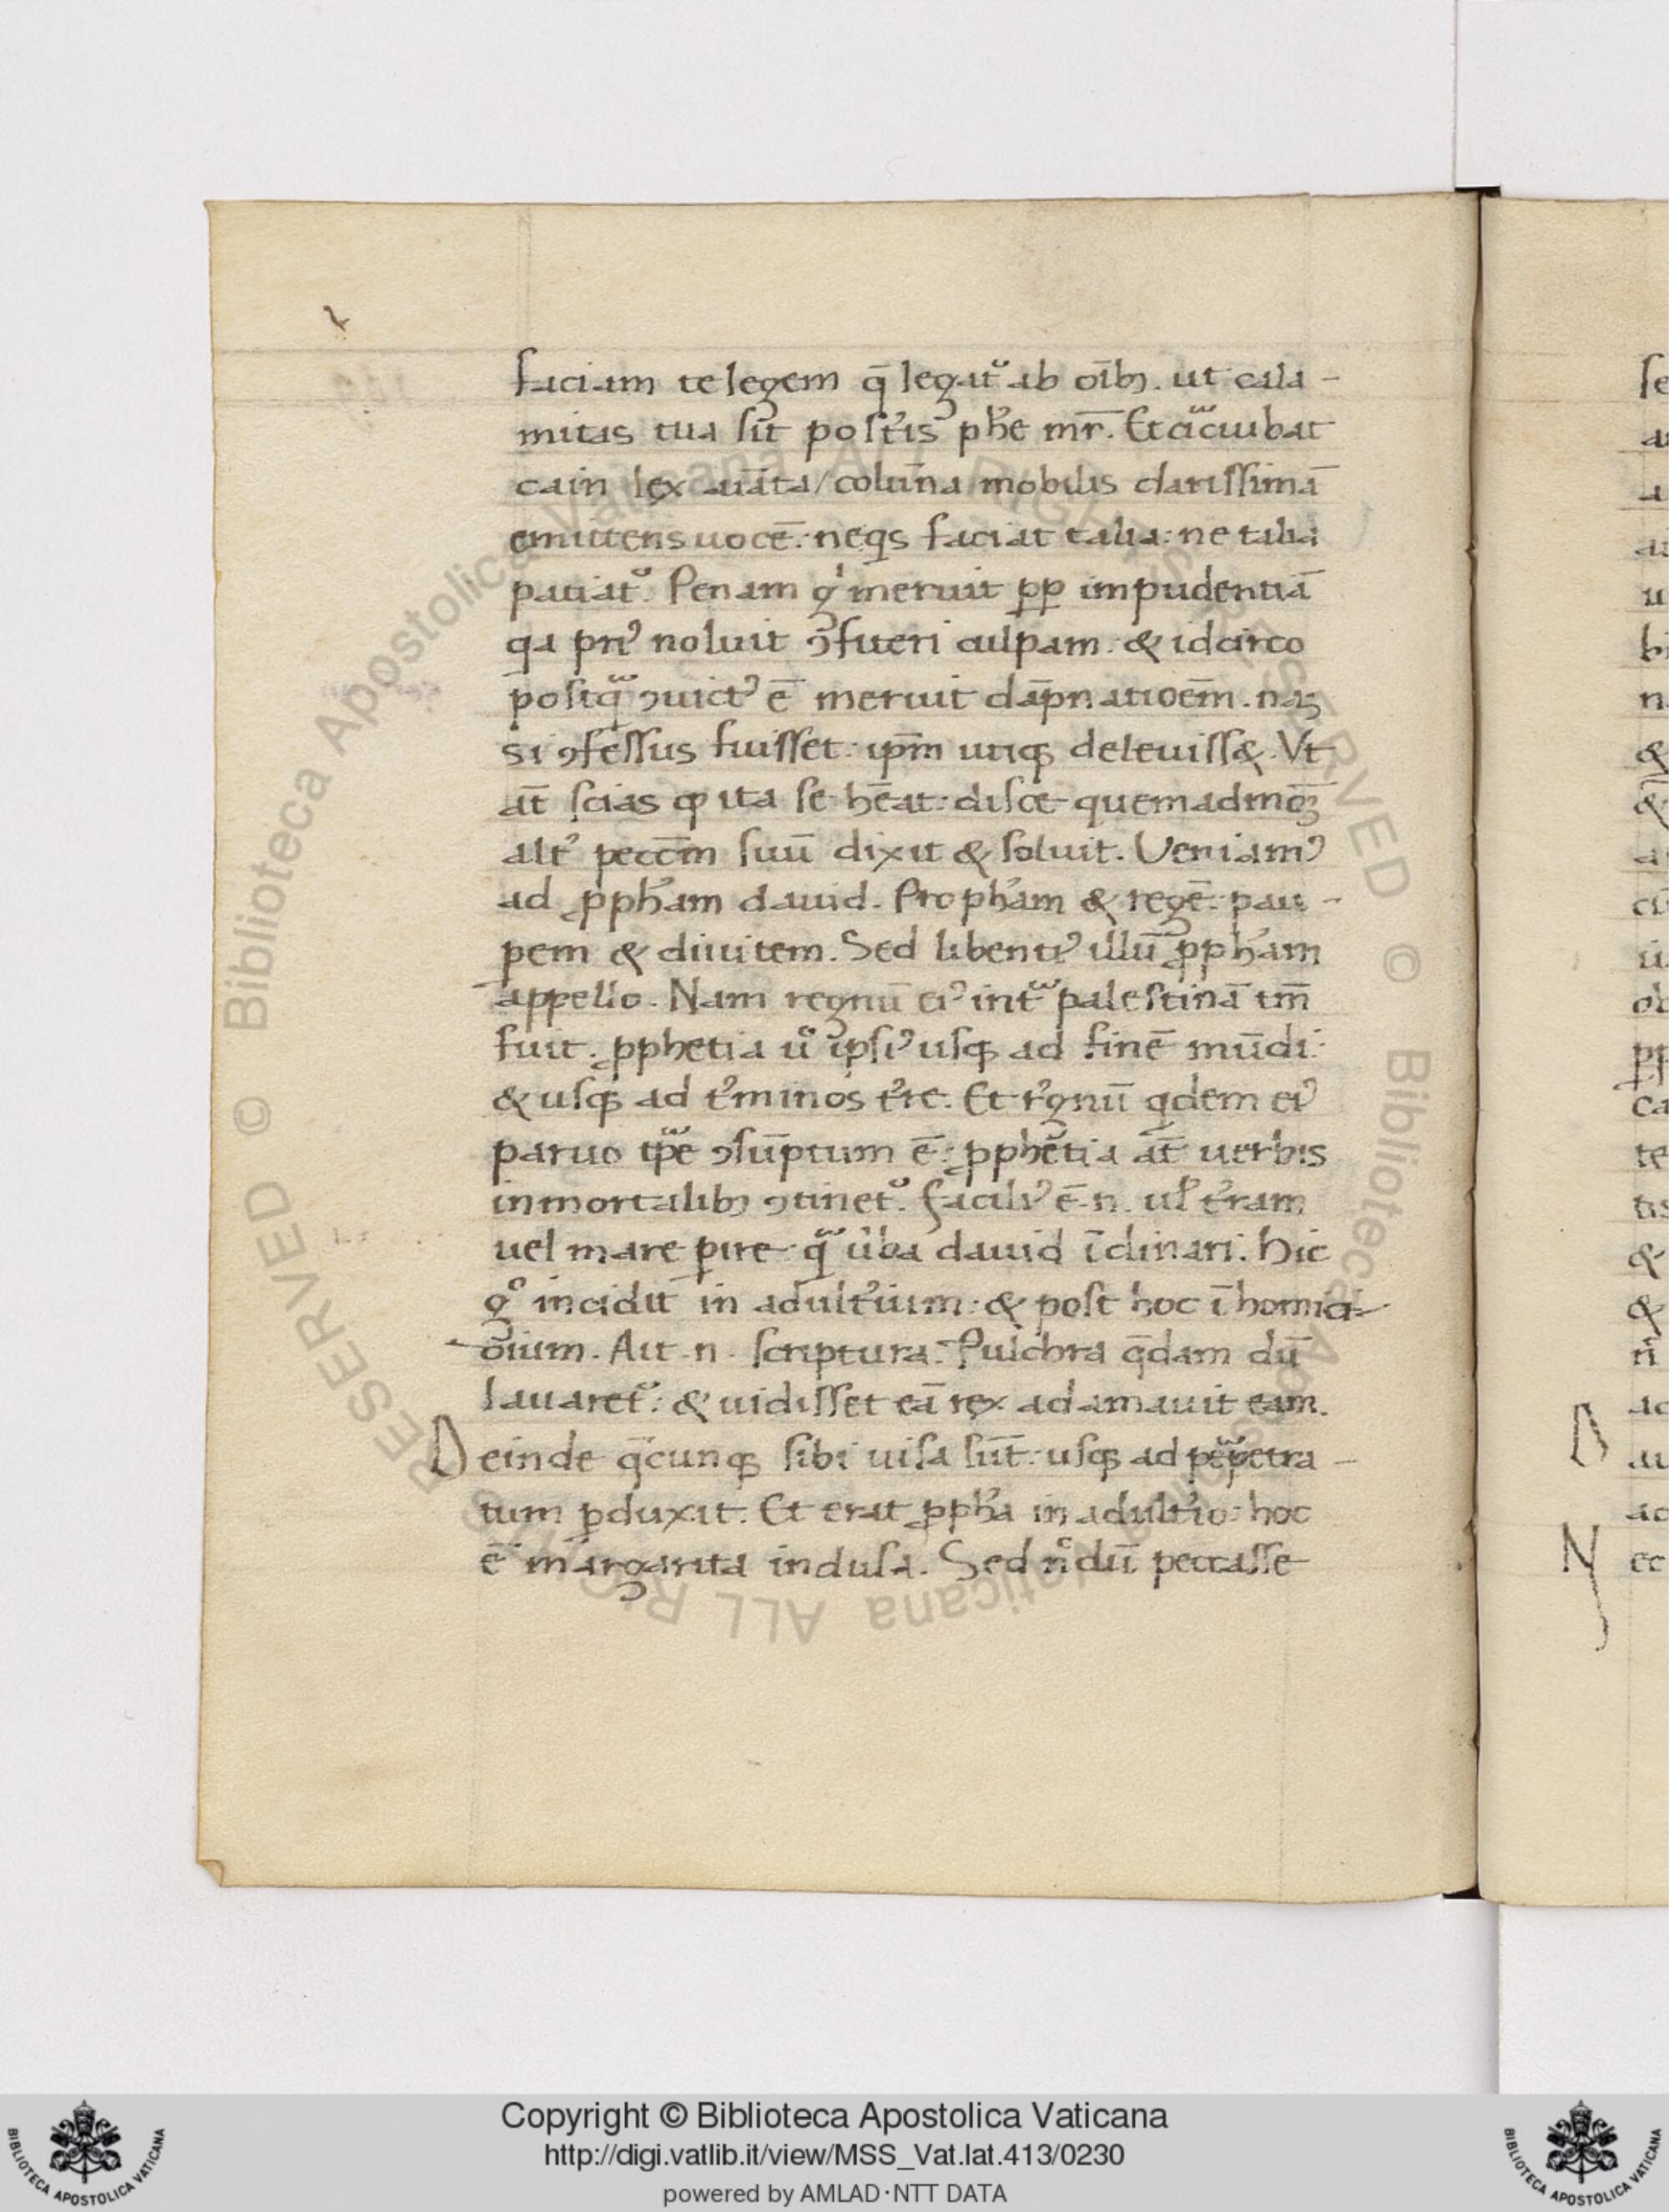 faciam te legem q̄ legat᷑ ab oı̄bꝫ. ut cala-
mitas tua sit post᷑is ph̄e mr̄. Et cͣcuibat
cain lex auāta / colūna mobilis clarissimā
emittens uocē. neq̇s faciat talia: ne talia
patiat᷑. Penam gͥ meruit ꝓp impudentiā
qa priꝰ noluit ꝯfiteri culpam. & idcirco
postqͣ̃ ꝯuictꝰ ē meruit dāpnatioēm. naꝫ
si ꝯfessus fuisset: ip̄m utiqꝫ deleuiss&. Vt
at̄ scias ꝙ ita se hēat: disce quemadmoꝫ
alt᷑ pecc̄m suū dixit & soluit. Veniamꝰ
ad ꝓph̄am dauid. Proph̄am & regē. pau-
ꝑem & diuitem. Sed libentiꝰ illū ꝓph̄am
appello. Nam regnū eiꝰ intͣ palestinā tm̄
fuit. ꝓphetia uͦ ipsiꝰ usqꝫ ad finē mūdi.
& usqꝫ ad t᷑minos t᷑re. Et r᷑gnū qͥdem eiꝰ
paruo tp̄e ꝯsūptum ē: ꝓphētia at̄ uerbis
inmortalibꝫ ꝯtinet᷑. Faciliꝰ ē.n. ul̄ t᷑ram
uel mare ꝑire qͣ̃ ūba dauid ı̄clinari. Hic
gͦ incidit in adult᷑ium: & post hoc ı̄ homici-
dium. Ait.n. scriptura. Pulchra q̄dam dū
lauaret᷑: & uidisset eā rex adamauit eam.
Deinde q̄cunqꝫ sibi uisa sūt: usqꝫ ad pꝑpetra-
tum ꝑduxit. Et erat ꝓph̄a in adult᷑io: hoc
ē margarita inclusa. Sed nͦdū peccasse
Copyright © Biblioteca Apostolica Vaticana
http://digi.vatlib.it/view/MSS_Vat.lat.413/0230
powered by AMLAD·NTT DATA